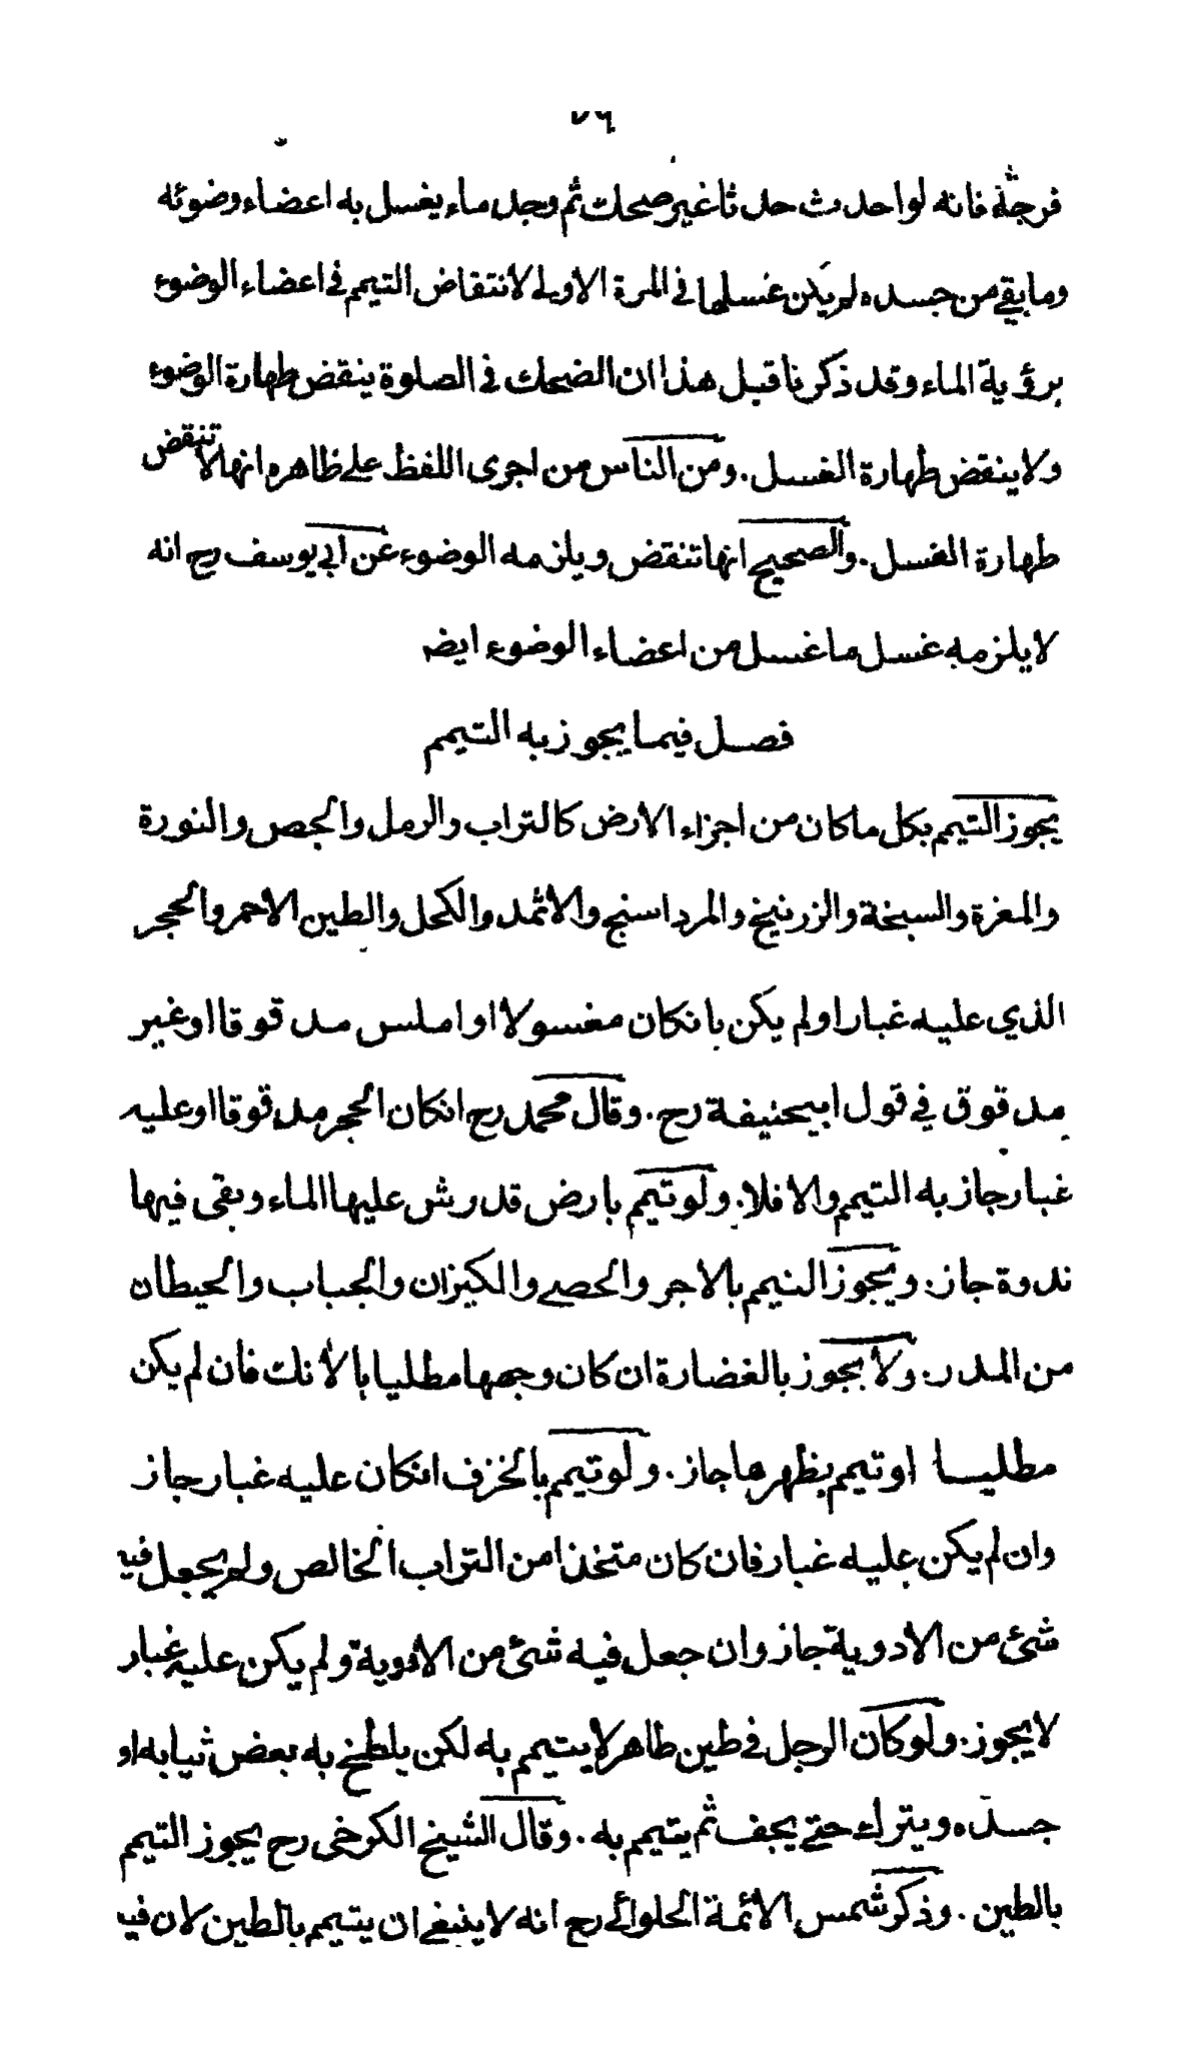 ٧٦
فرجته فانه لو احدث حدثا غير ضحك ثم وجد ماء يغسل به اعضاء وضوئه
وما بقي من جسده لم يكن غسلها في المرة الاولى لانتقاض التيمم في اعضاء الوضوء
برؤية الماء وقد ذكرنا قبل هذا ان الضحك في الصلوة ينقض طهارة الوضوء
ولا ينقض طهارة الغسل . ومن الناس من اجرى اللفظ على ظاهره انها لا تنقض
طهارة الغسل . والصحيح انها تنقض ويلزمه الوضوء عن ابي يوسف رح انه
لا يلزمه غسل ما غسل من اعضاء الوضوء ايضه
فصل فيما يجوز به التيمم
يجوز التيمم بكل ما كان من اجزاء الارض كالتراب والرمل والجص والنورة
والمغرة والسبخة والزرنيخ والمرداسنج والاثمد والكحل والطين الاحمر والحجر
الذي عليه غبار او لم يكن بانكان مغسولا او املس مدقوقا او غير
مدقوق في قول ابيحنيفة رح . وقال محمد رح انكان الحجر مدقوقا او عليه
غبار جاز به التيمم والا فلا . ولو تيمم بارض قد رش عليها الماء وبقى فيها
ندوة جاز . ويجوز التيمم بالاجر والحصى والكيزان والجباب والحيطان
من المدر . ولا يجوز بالغضارة ان كان وجهها مطليا بالأنك فان لم يكن
مطليا او تيمم بظهرها جاز . ولو تيمم بالخزف انكان عليه غبار جاز
وان لم يكن عليه غبار فان كان متخذا من التراب الخالص ولم يجعل فيه
شئ من الادوية جاز وان جعل فيه شئ من الادوية ولم يكن عليه غبار
لا يجوز . ولو كان الرجل في طين طاهر لا يتيمم به لكن يلطخ به بعض ثيابه او
جسده ويترك حتى يجف ثم يتيمم به . وقال الشيخ الكرخى رح يجوز التيمم
بالطين . وذكر شمس الائمة الحلوائي رح انه لا ينبغي ان يتيمم بالطين لان فيه